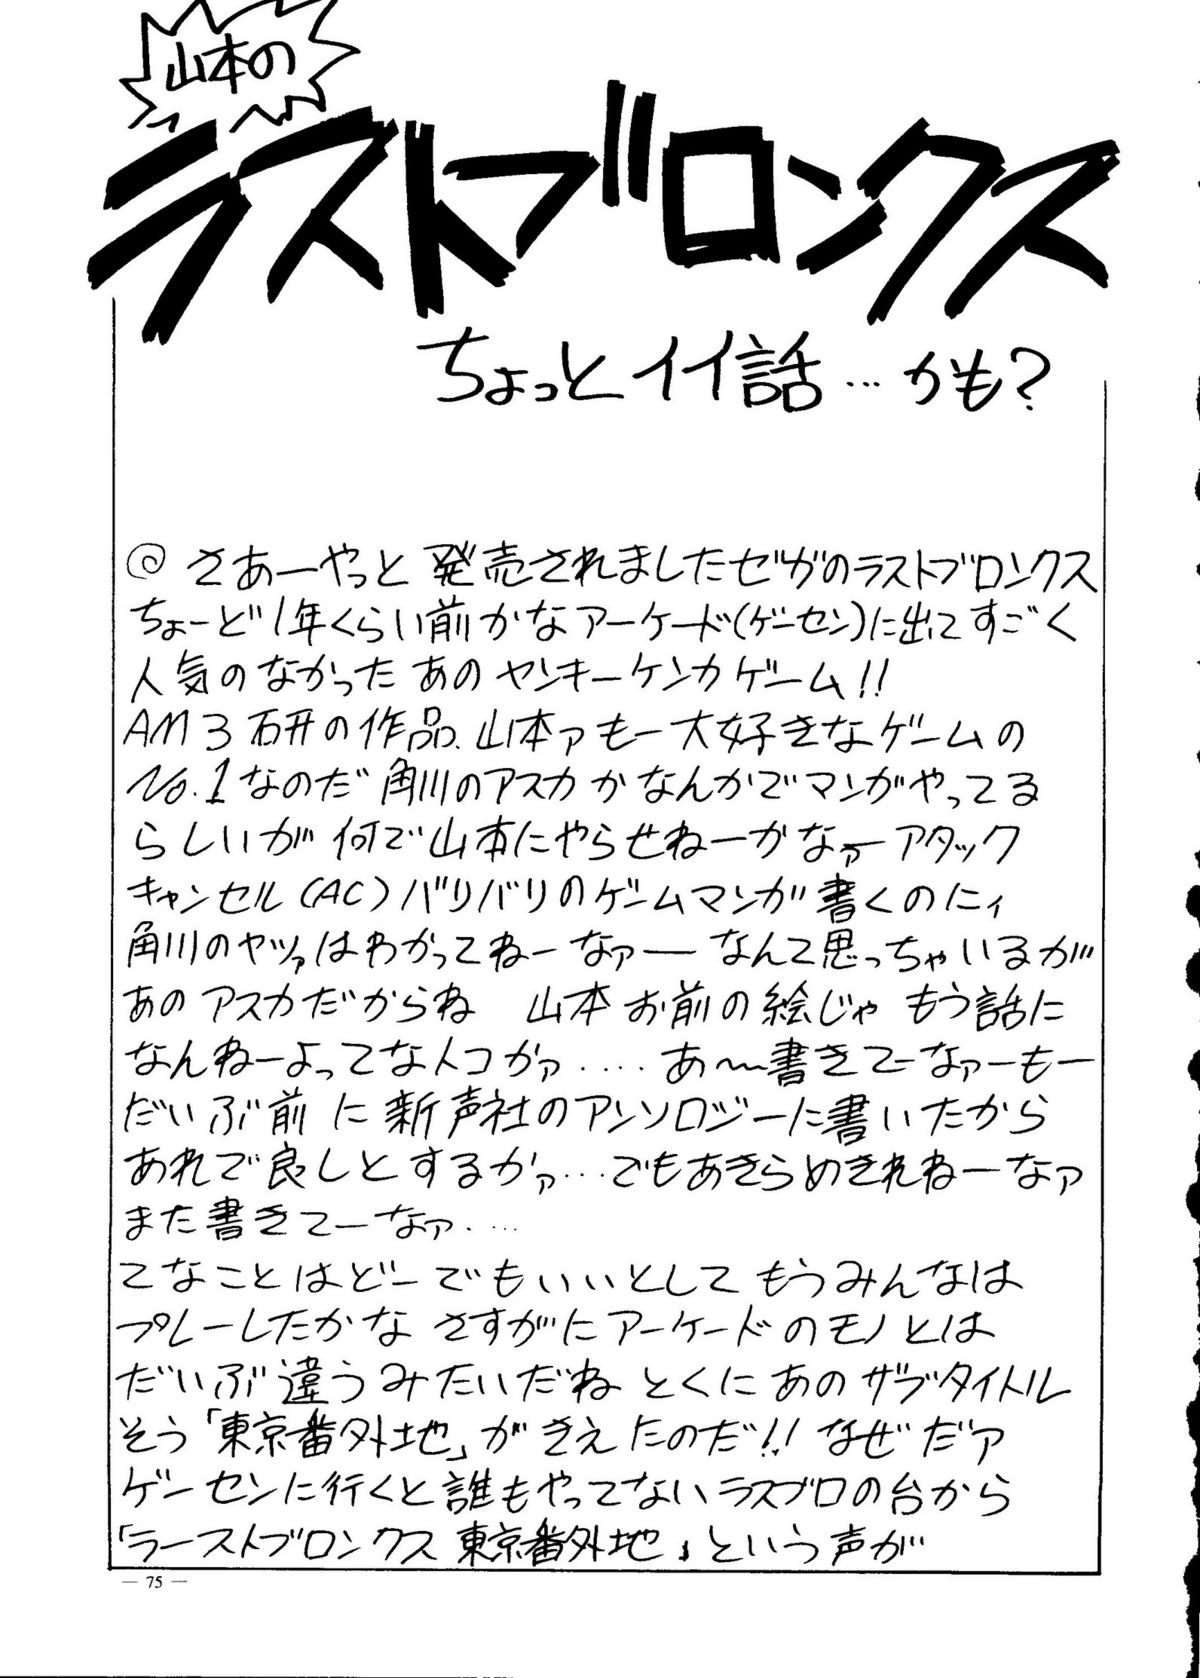 山本の
ラストブロンクス
ちょっとイイ話…かも?
◎ さあーやっと発売されましたセガのラストブロンクス
ちょーど1年くらい前かなアーケード(ゲーセン)に出てすごく
人気のなかったあのヤンキーケンカゲーム!!
AM3研の作品、山本ァもー大好きなゲームの
No.1なのだ角川のアスカかなんかでマンガやってる
らしいが何で山本にやらせねーかなァーアタック
キャンセル(AC)バリバリのゲームマンガ書くのにィ
角川のヤツァはわかってねーなァーなんて思っちゃいるが
あのアスカだからね 山本お前の絵じゃもう話に
なんねーよってなトコかァ‥‥あ〜書きてーなァーもー
だいぶ前に新声社のアンソロジーに書いたから
あれで良しとするかァ…でもあきらめきれねーなァ
また書きてーなァ‥‥
てなことはどーでもいいとしてもうみんなは
プレーしたかなさすがにアーケードのモノとは
だいぶ違うみたいだねとくにあのサブタイトル
そう「東京番外地」がきえたのだ!!なぜだァ
ゲーセンに行くと誰もやってないラスブロの台から
「ラーストブロンクス東京番外地」という声が
— 75 —